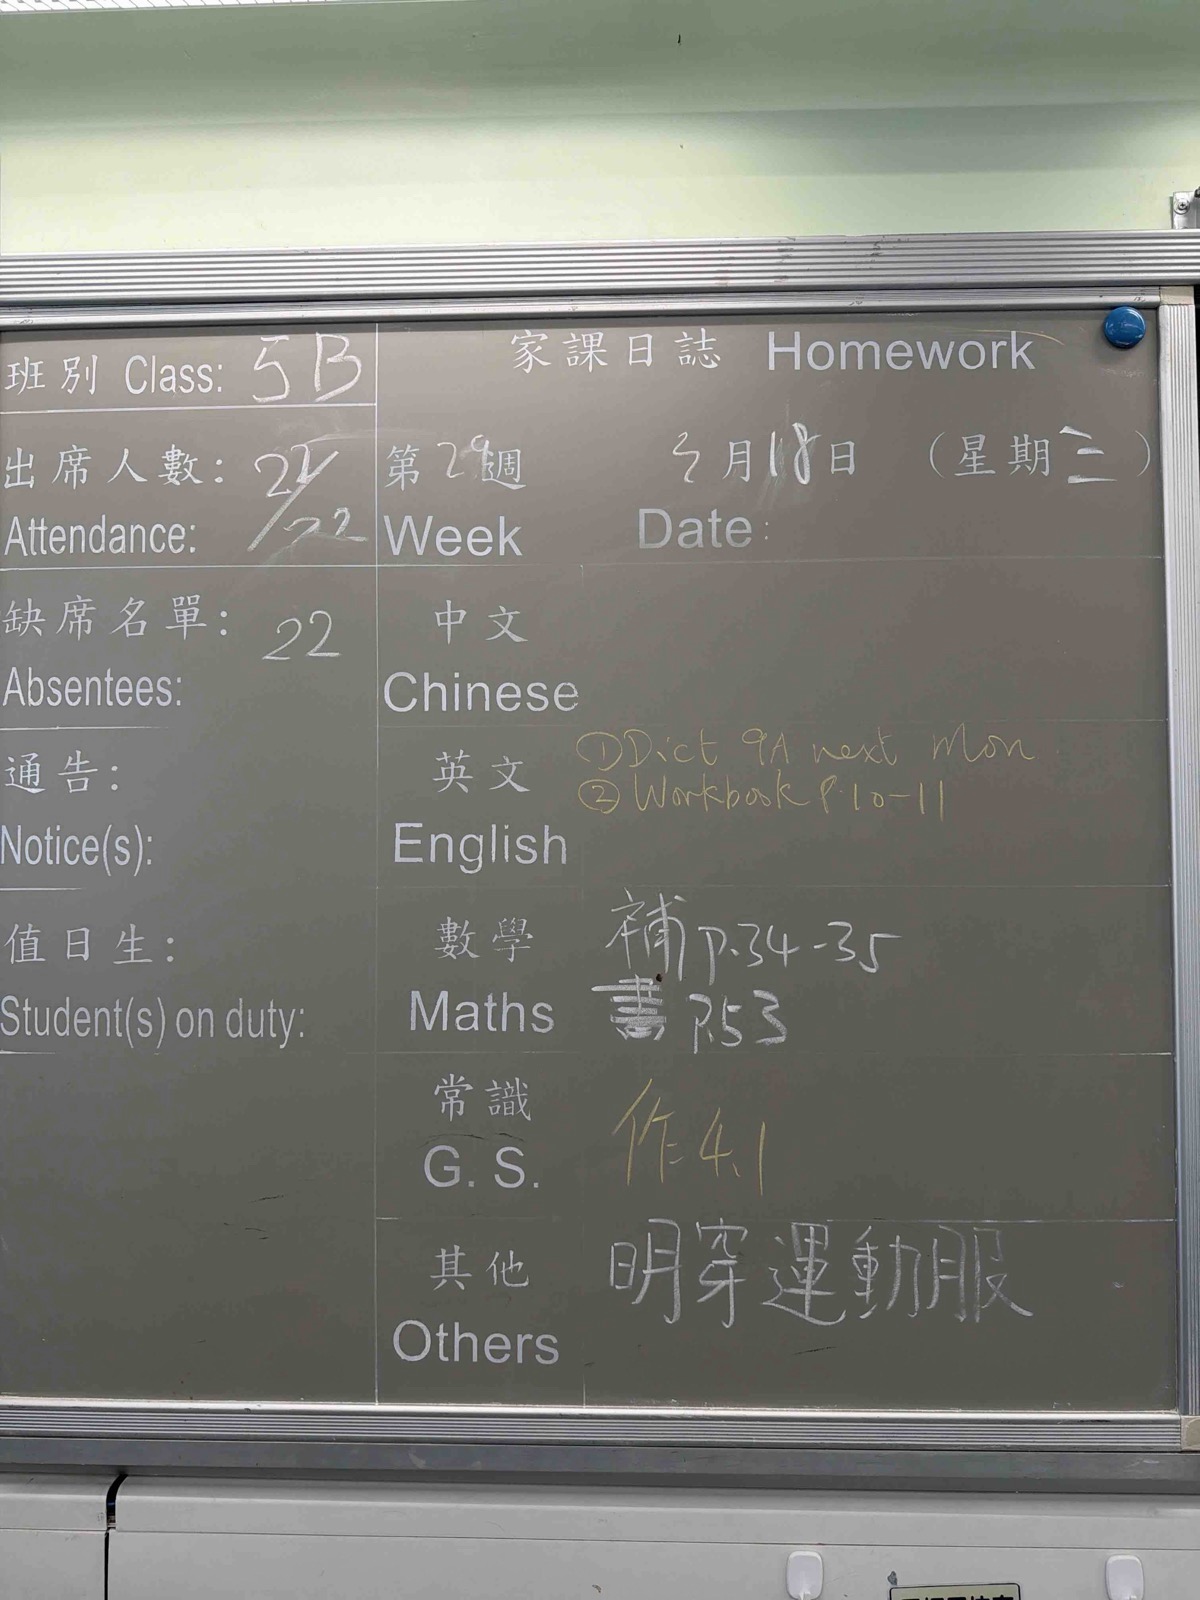 班別 Class: 5B
出席人數: 21/22
Attendance:
缺席名單: 22
Absentees:
通告:
Notice(s):
值日生:
Student(s) on duty:
家課日誌 Homework
第29週 月18日 (星期三)
Week Date:
中文
Chinese
英文 ①Dict 9A next Mon
②Workbook P.10-11
English
數學 補 P.34-35
Maths 書 P.53
常識
G. S. 作 4.1
其他 明穿運動服
Others